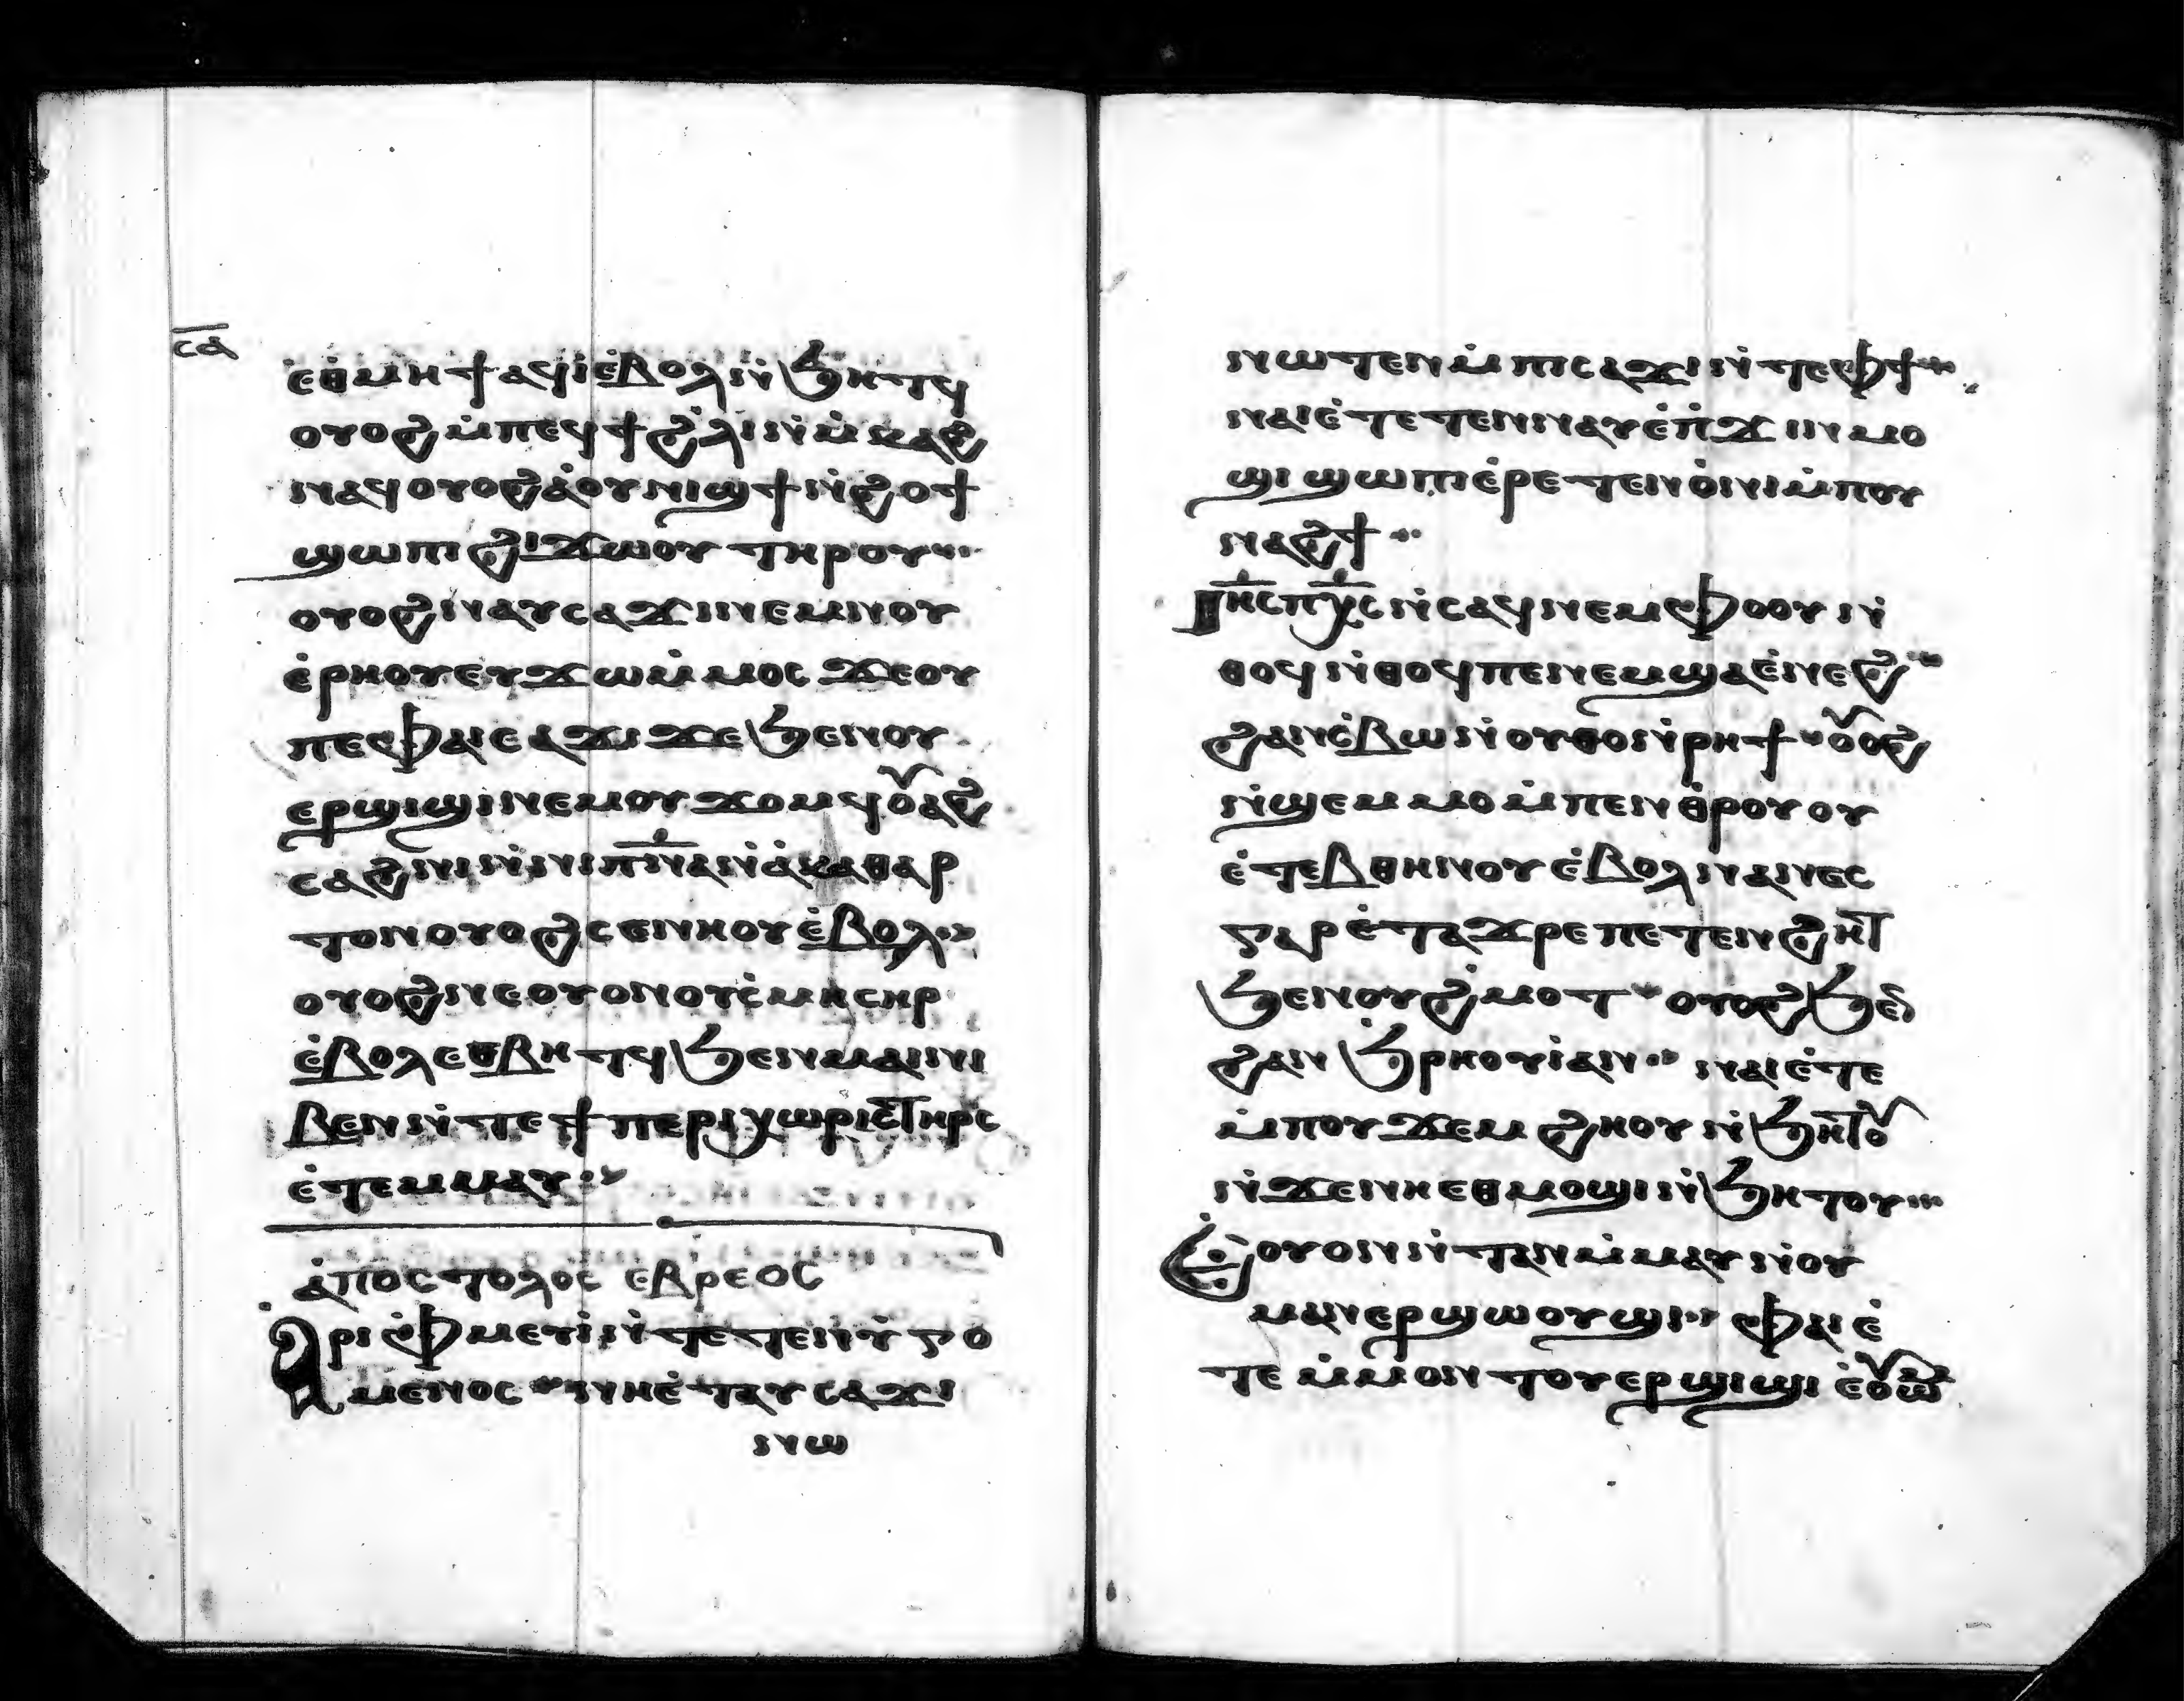 ⲥⲁ
ⲉ̇ⲑⲙⲏϯⲁϥⲓ̇ⲉ̇ⲃⲟⲗⲛ̇ϧⲏⲧϥ
ⲟⲩⲟϩⲙ̇ⲡⲉϥϯϩ̇ⲗⲓⲛ̇ⲙ̇ⲕⲁϩ
ⲛⲁϥⲟⲩⲟϩⲁ̇ⲟⲩⲛⲓϣϯⲛ̇ϩⲟϯ
ϣⲱⲡⲓϩⲓϫⲱⲟⲩ ⲧⲏⲣⲟⲩ
ⲟⲩⲟϩⲛⲁⲩⲥⲁϫⲓⲛⲉⲙⲛⲟⲩ
ⲉ̇ⲣⲏⲟⲩⲉⲩϫⲱⲙ̇ⲙⲟⲥ ϫⲉⲟⲩ
ⲡⲉⲫⲁⲓⲥⲁϫⲓ ϫⲉϧⲉⲛⲟⲩ
ⲉⲣϣⲓϣⲓⲛⲉⲙⲟⲩϫⲟⲙϥⲟⲩⲁϩ
ⲥⲁϩⲛⲓⲛ̇ⲛⲓⲡ̅ⲛ̅ⲁ̅ⲛ̇ⲁ̇ⲕⲁⲑⲁⲣ
ⲧⲟⲛⲟⲩⲟϩⲥⲉⲛⲏⲟⲩⲉ̇ⲃⲟⲗ
ⲟⲩⲟϩⲛⲉⲟⲩⲟⲛⲟⲩⲥ̇ⲙⲏⲥⲏⲣ
ⲉ̇ⲃⲟⲗⲉⲑⲃⲏⲧϥϧⲉⲛⲙⲁⲓⲛⲓ
ⲃⲉⲛⲛ̇ⲧⲉϯⲡⲉⲣⲓⲭⲱⲣⲓⲥⲧⲏⲣⲥ
ⲉ̇ⲧⲉⲙⲙⲁⲩ
ⲁ̇ⲡⲟⲥⲧⲟⲗⲟⲥ ⲉⲃⲣⲉⲟⲥ
ⲁ̇ⲣⲓⲫⲙⲉⲩⲓ̇ⲛ̇ⲧⲉⲧⲉⲛⲩ̇ⲅⲟ
ⲙⲉⲛⲟⲥ ⲛⲏⲉ̇ⲧⲁⲩⲥⲁϫⲓ
ⲛⲱ
ⲛⲱⲧⲉⲛⲙ̇ⲡⲓⲥⲁϫⲓⲛ̇ⲧⲉⲫϯ
ⲛⲁⲓⲉ̇ⲧⲉⲧⲉⲛⲛⲁⲩⲉ̇ⲡ̇ϫⲓⲛⲙⲟ
ϣⲓϣⲱⲡⲓⲉ̇ⲣⲉⲧⲉⲛⲟ̇ⲛⲓⲙ̇ⲡⲟⲩ
ⲛⲁϩϯ
ⲓ̅ⲏ̅ⲥ̅ⲡ̅ⲭ̅ⲥ̅ⲛ̇ⲥⲁϥⲛⲉⲙⲫⲟⲟⲩⲛ̇
ⲑⲟϥⲛ̇ⲑⲟϥⲡⲉⲛⲉⲙϣⲁⲉ̇ⲛⲉϩ
ϩⲁⲛⲥ̇ⲃⲱⲛ̇ⲟⲩⲑⲟⲛ̇ⲣⲏϯ ⲟⲩⲟϩ
ⲛ̇ϣⲉⲙⲙⲟⲙ̇ⲡⲉⲛⲑ̇ⲣⲟⲩⲟⲩ
ⲉ̇ⲧⲉⲃⲑⲏⲛⲟⲩⲉ̇ⲃⲟⲗⲛⲁⲛⲉⲥ
ⲅⲁⲣⲉ̇ⲧⲁϫⲣⲉⲡⲉⲧⲉⲛϩⲏⲧ
ϧⲉⲛⲟⲩϩ̇ⲙⲟⲧ ⲟⲩⲟϩϧⲉⲛ
ϩⲁⲛϧ̇ⲣⲏⲟⲩⲓ̇ⲁⲛ ⲛⲁⲓⲉ̇ⲧⲉ
ⲙ̇ⲡⲟⲩϫⲉⲙϩⲏⲟⲩⲛ̇ϧⲏⲧⲟⲩ
ⲛ̇ϫⲉⲛⲏⲉⲑⲙⲟϣⲓⲛ̇ϧⲏⲧⲟⲩ
ⲉ̇ⲟⲩⲟⲛⲛ̇ⲧⲁⲛⲙ̇ⲙⲁⲩⲛ̇ⲟⲩ
ⲙⲁⲛⲉⲣϣⲱⲟⲩϣⲓ ⲫⲁⲓⲉ̇
ⲧⲉ ⲙ̇ⲙⲟⲛⲧⲟⲩⲉⲣϣⲓϣⲓ ⲉ̇ⲟⲩⲱⲙ